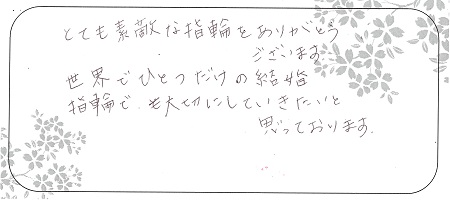 とても素敵な指輪をありがとう
ございます
世界でひとつだけの結婚
指輪で も大切にしていきたいと
思っております。